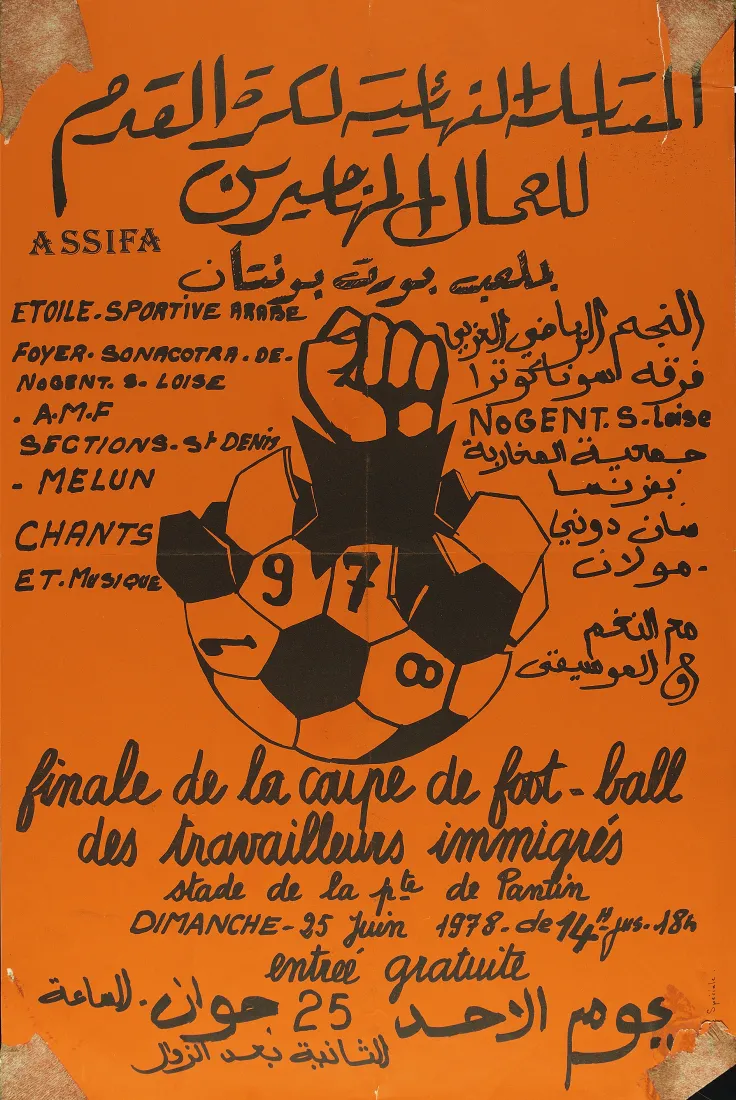 المقابلة النهائية لكرة القدم
للعمال المهاجرين
ASSIFA
بملعب بورت بونتان
ETOILE-SPORTIVE ARABE
FOYER-SONACOTRA-DE-
NOGENT. S- LOISE
. A.M.F
SECTIONS-St DENIS
- MELUN
CHANTS
ET. MUSIQUE
النجم الرياضي العربي
فرقه سوناكوترا
NOGENT. S-Loise
جمعية المغاربة
بفرنسا
سان دوني
-مولان
مع النغم
و الموسيقى
1978
finale de la coupe de foot-ball
des travailleurs immigrés
stade de la pte de Pantin
DIMANCHE-25 Juin 1978-de 14H-jus-18h
entreé gratuite
يوم الاحد 25 جوان - الساعة
الثانية بعد الزوال
Speciale